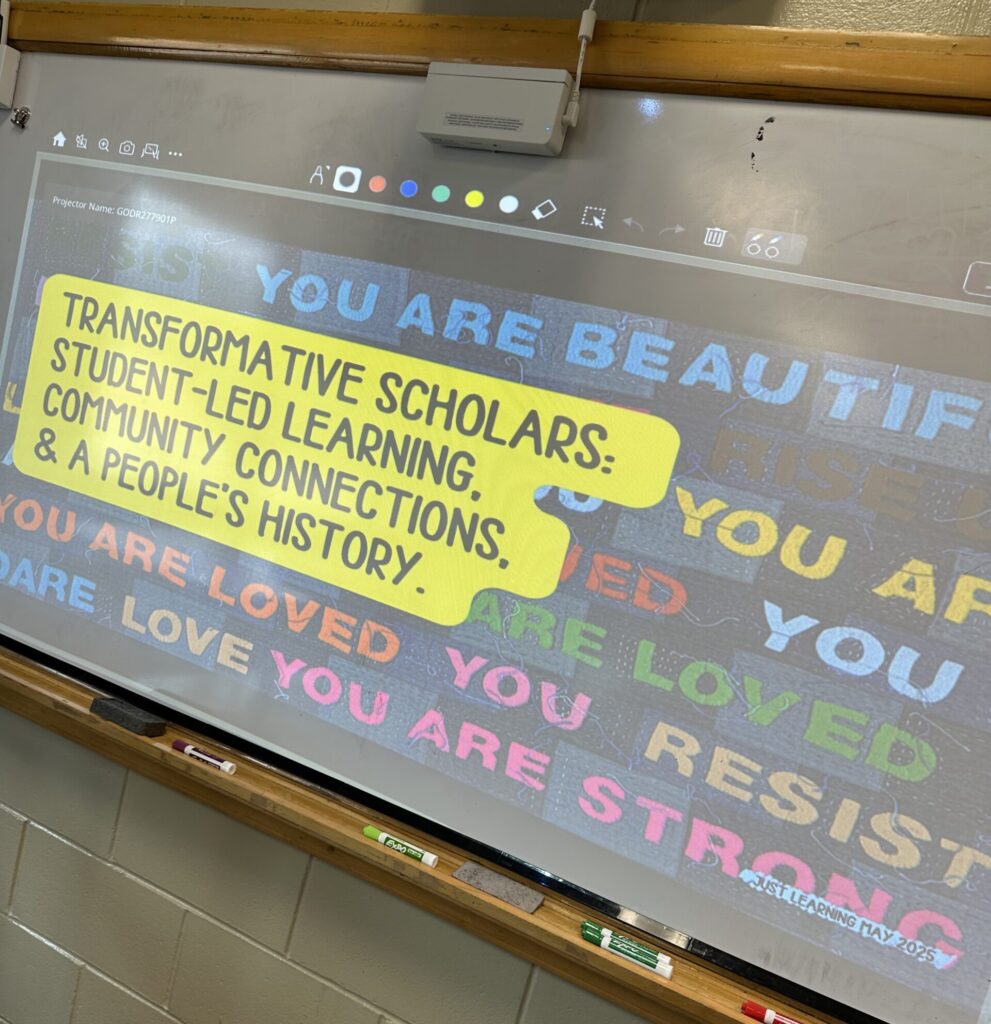 Projector Name: GODR277901P
SIST
YOU ARE BEAUTIF
TRANSFORMATIVE SCHOLARS:
STUDENT-LED LEARNING,
COMMUNITY CONNECTIONS,
& A PEOPLE'S HISTORY.
RISE
YOU AR
YOU ARE LOVED
ARE LOVED
YOU
DARE
LOVE
YOU
RESIST
YOU ARE STRONG
JUST LEARNING MAY 2025
EXPO